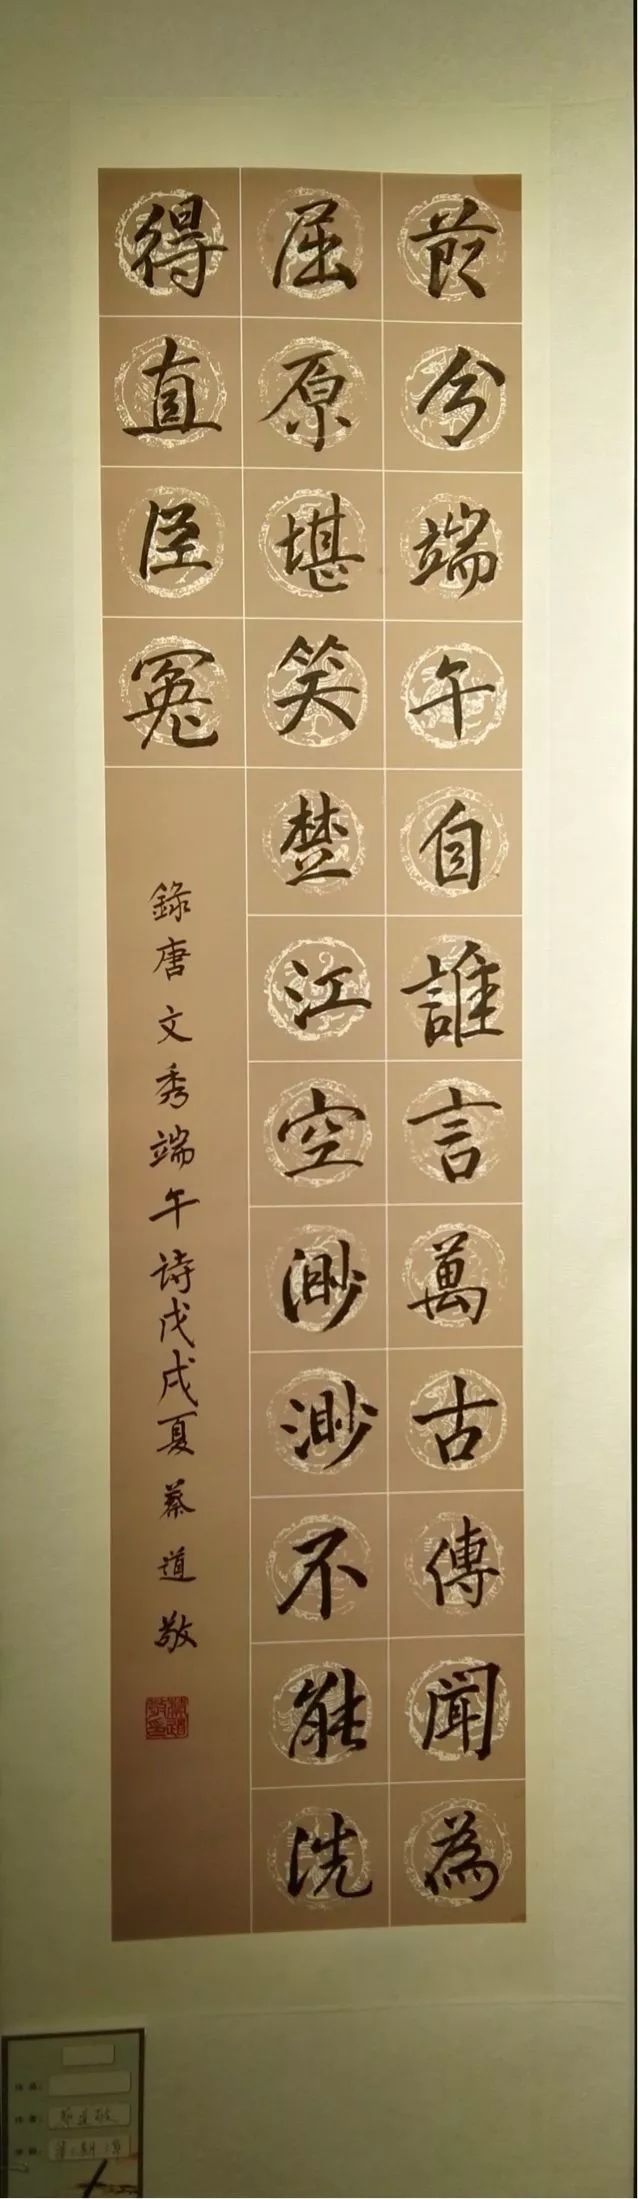 莭分端午自誰言萬古傳聞為
屈原堪笑楚江空渺渺不能洗
得直臣寃
錄唐文秀端午诗戊戌夏蔡道敬
蔡道敬